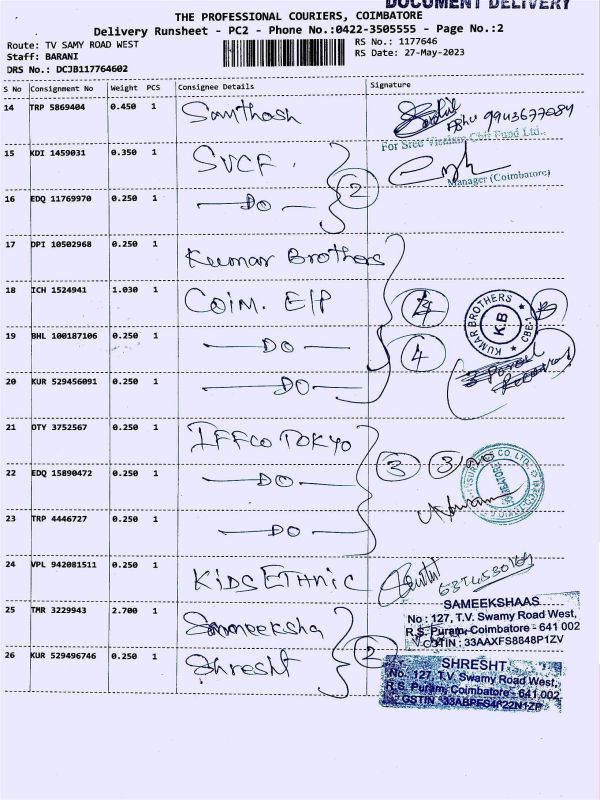 DOCUMENT DELIVERY
THE PROFESSIONAL COURIERS, COIMBATORE
Delivery Runsheet - PC2 - Phone No.:0422-3505555 - Page No.:2
Route: TV SAMY ROAD WEST
RS No.: 1177646
Staff: BARANI
RS Date: 27-May-2023
DRS No.: DCJB117764602
S No Consignment No Weight PCS Consignee Details Signature
14 TRP 5869404 0.450 1 Santhosh
9943677084
For Sree Chit Fund Ltd.,
15 KDI 1459031 0.350 1 SVCF.
Manager (Coimbatore)
16 EDQ 11769970 0.250 1 DO 2
17 DPI 10502968 0.250 1 Kumar Brothers
18 ICH 1524941 1.030 1 COIM. E/P
KUMAR BROTHERS ★ CBE-1 ★
K.B
19 BHL 100187106 0.250 1 DO 4
20 KUR 529456091 0.250 1 DO
21 OTY 3752567 0.250 1 IFFCO TOKYO
3 3
22 EDQ 15890472 0.250 1 DO
23 TRP 4446727 0.250 1 DO
24 VPL 942081511 0.250 1 KIDS ETHNIC
25 TMR 3229943 2.700 1 Sameeksha
SAMEEKSHAAS
No : 127, T.V. Swamy Road West,
R.S. Puram, Coimbatore - 641 002
GSTIN : 33AAXFS8848P1ZV
26 KUR 529496746 0.250 1 Shresht 2
SHRESHT
No. 127, T.V. Swamy Road West,
R.S. Puram, Coimbatore - 641 002